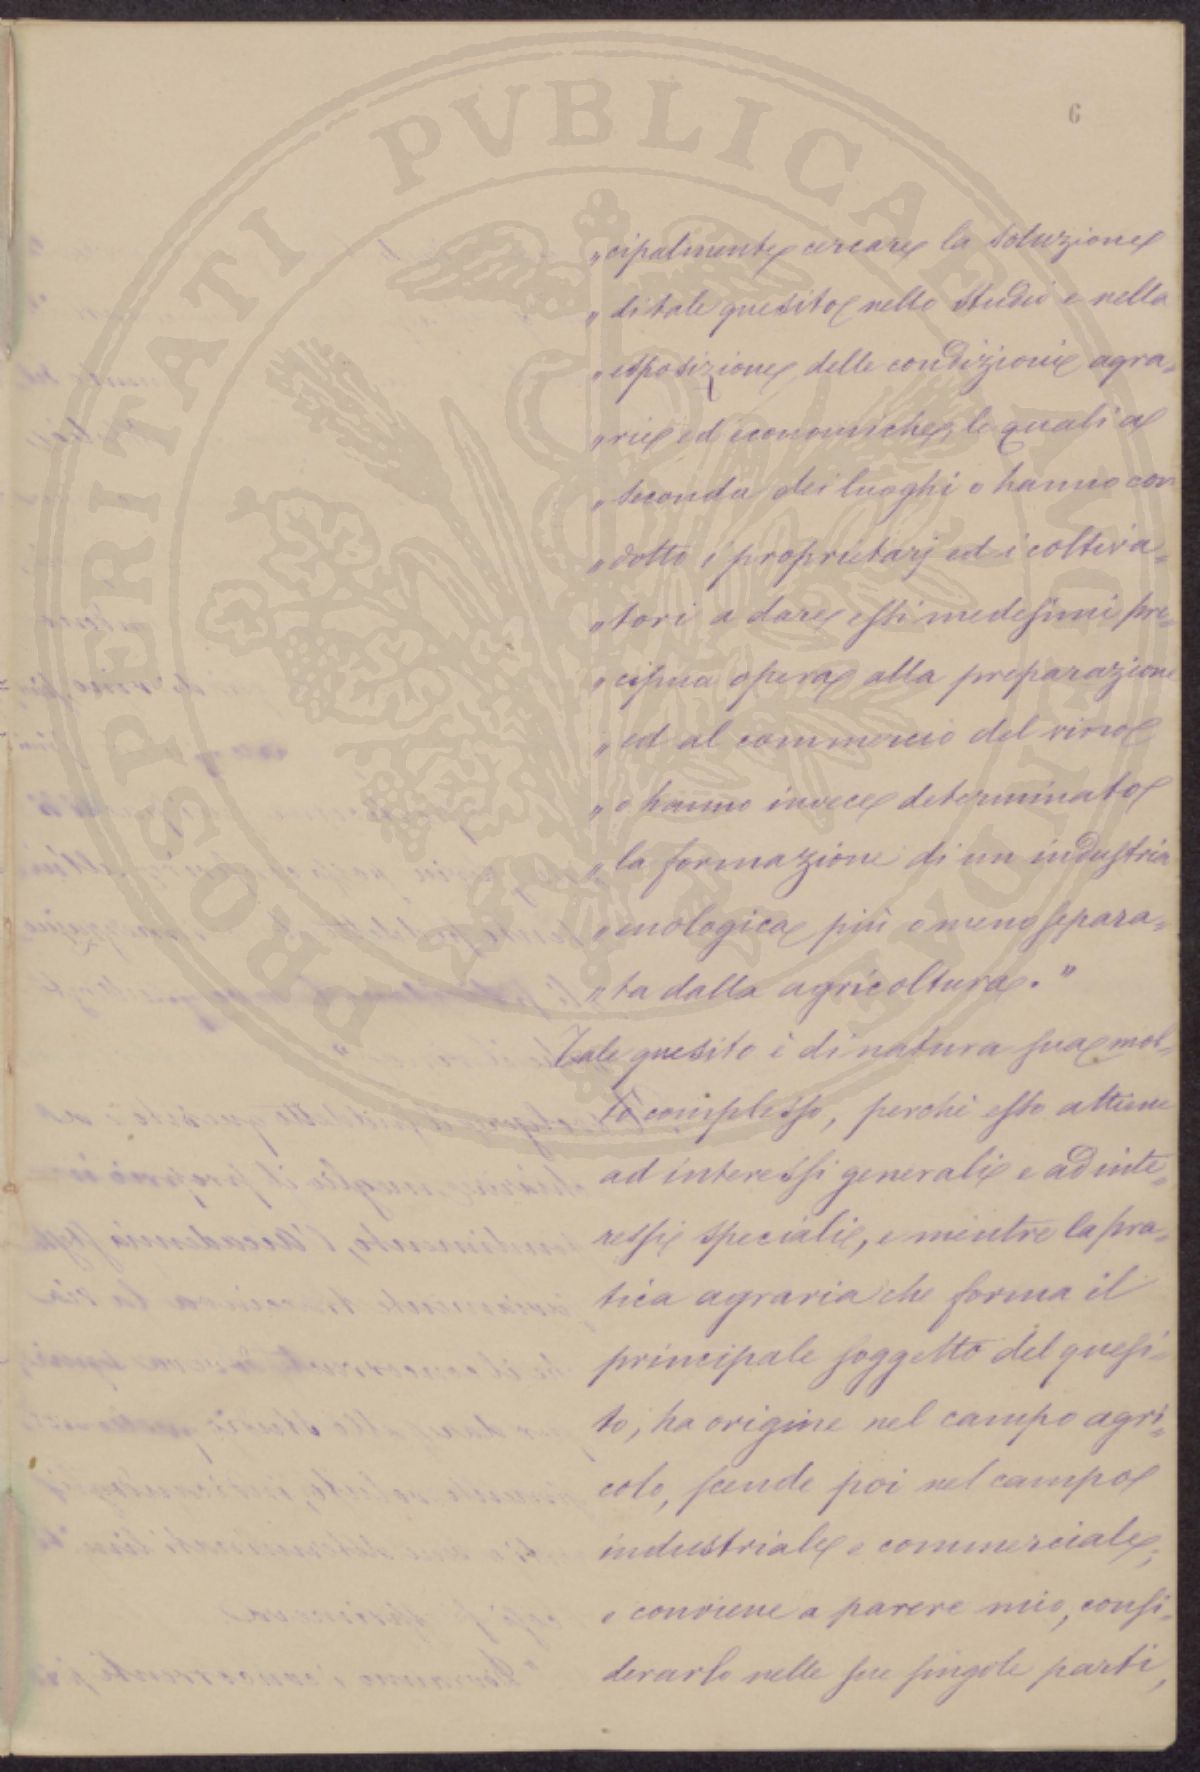 PROSPERITATI PVBLICAE AVGENDAE
6
„cipalmente cercare la soluzione
„ di tale quesito nello studio e nella
„ esposizione delle condizioni agra„
„ rie ed economiche, le quali a
„ seconda dei luoghi o hanno con
„ dotto i proprietarj ed i coltiva„
„ tori a dare essi medesimi pre„
„ cipua opera alla preparazione
„ ed al commercio del vino
„ o hanno invece determinato
„ la formazione di un industria
„ enologica più o meno separa„
„ ta dalla agricoltura."
Tale quesito è di natura sua mol„
to complesso, perchè esso attiene
ad interessi generali e ad inte„
ressi speciali, e mentre la pra„
tica agraria che forma il
principale soggetto del quesi„
to, ha origine nel campo agri„
colo, scende poi nel campo
industriale e commerciale,
e conviene a parere mio, consi„
derarlo nelle sue singole parti,